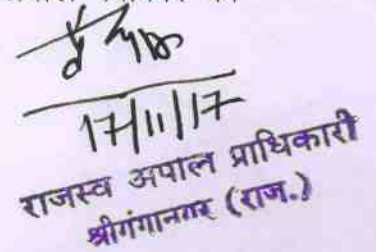 17/11/17
राजस्व अपील प्राधिकारी
श्रीगंगानगर (राज.)